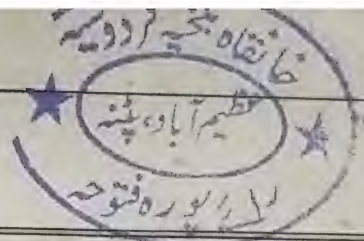 خانقاہ بلخیہ فردوسیہ
عظیم آباد، پٹنہ
رائے پورہ فتوحہ